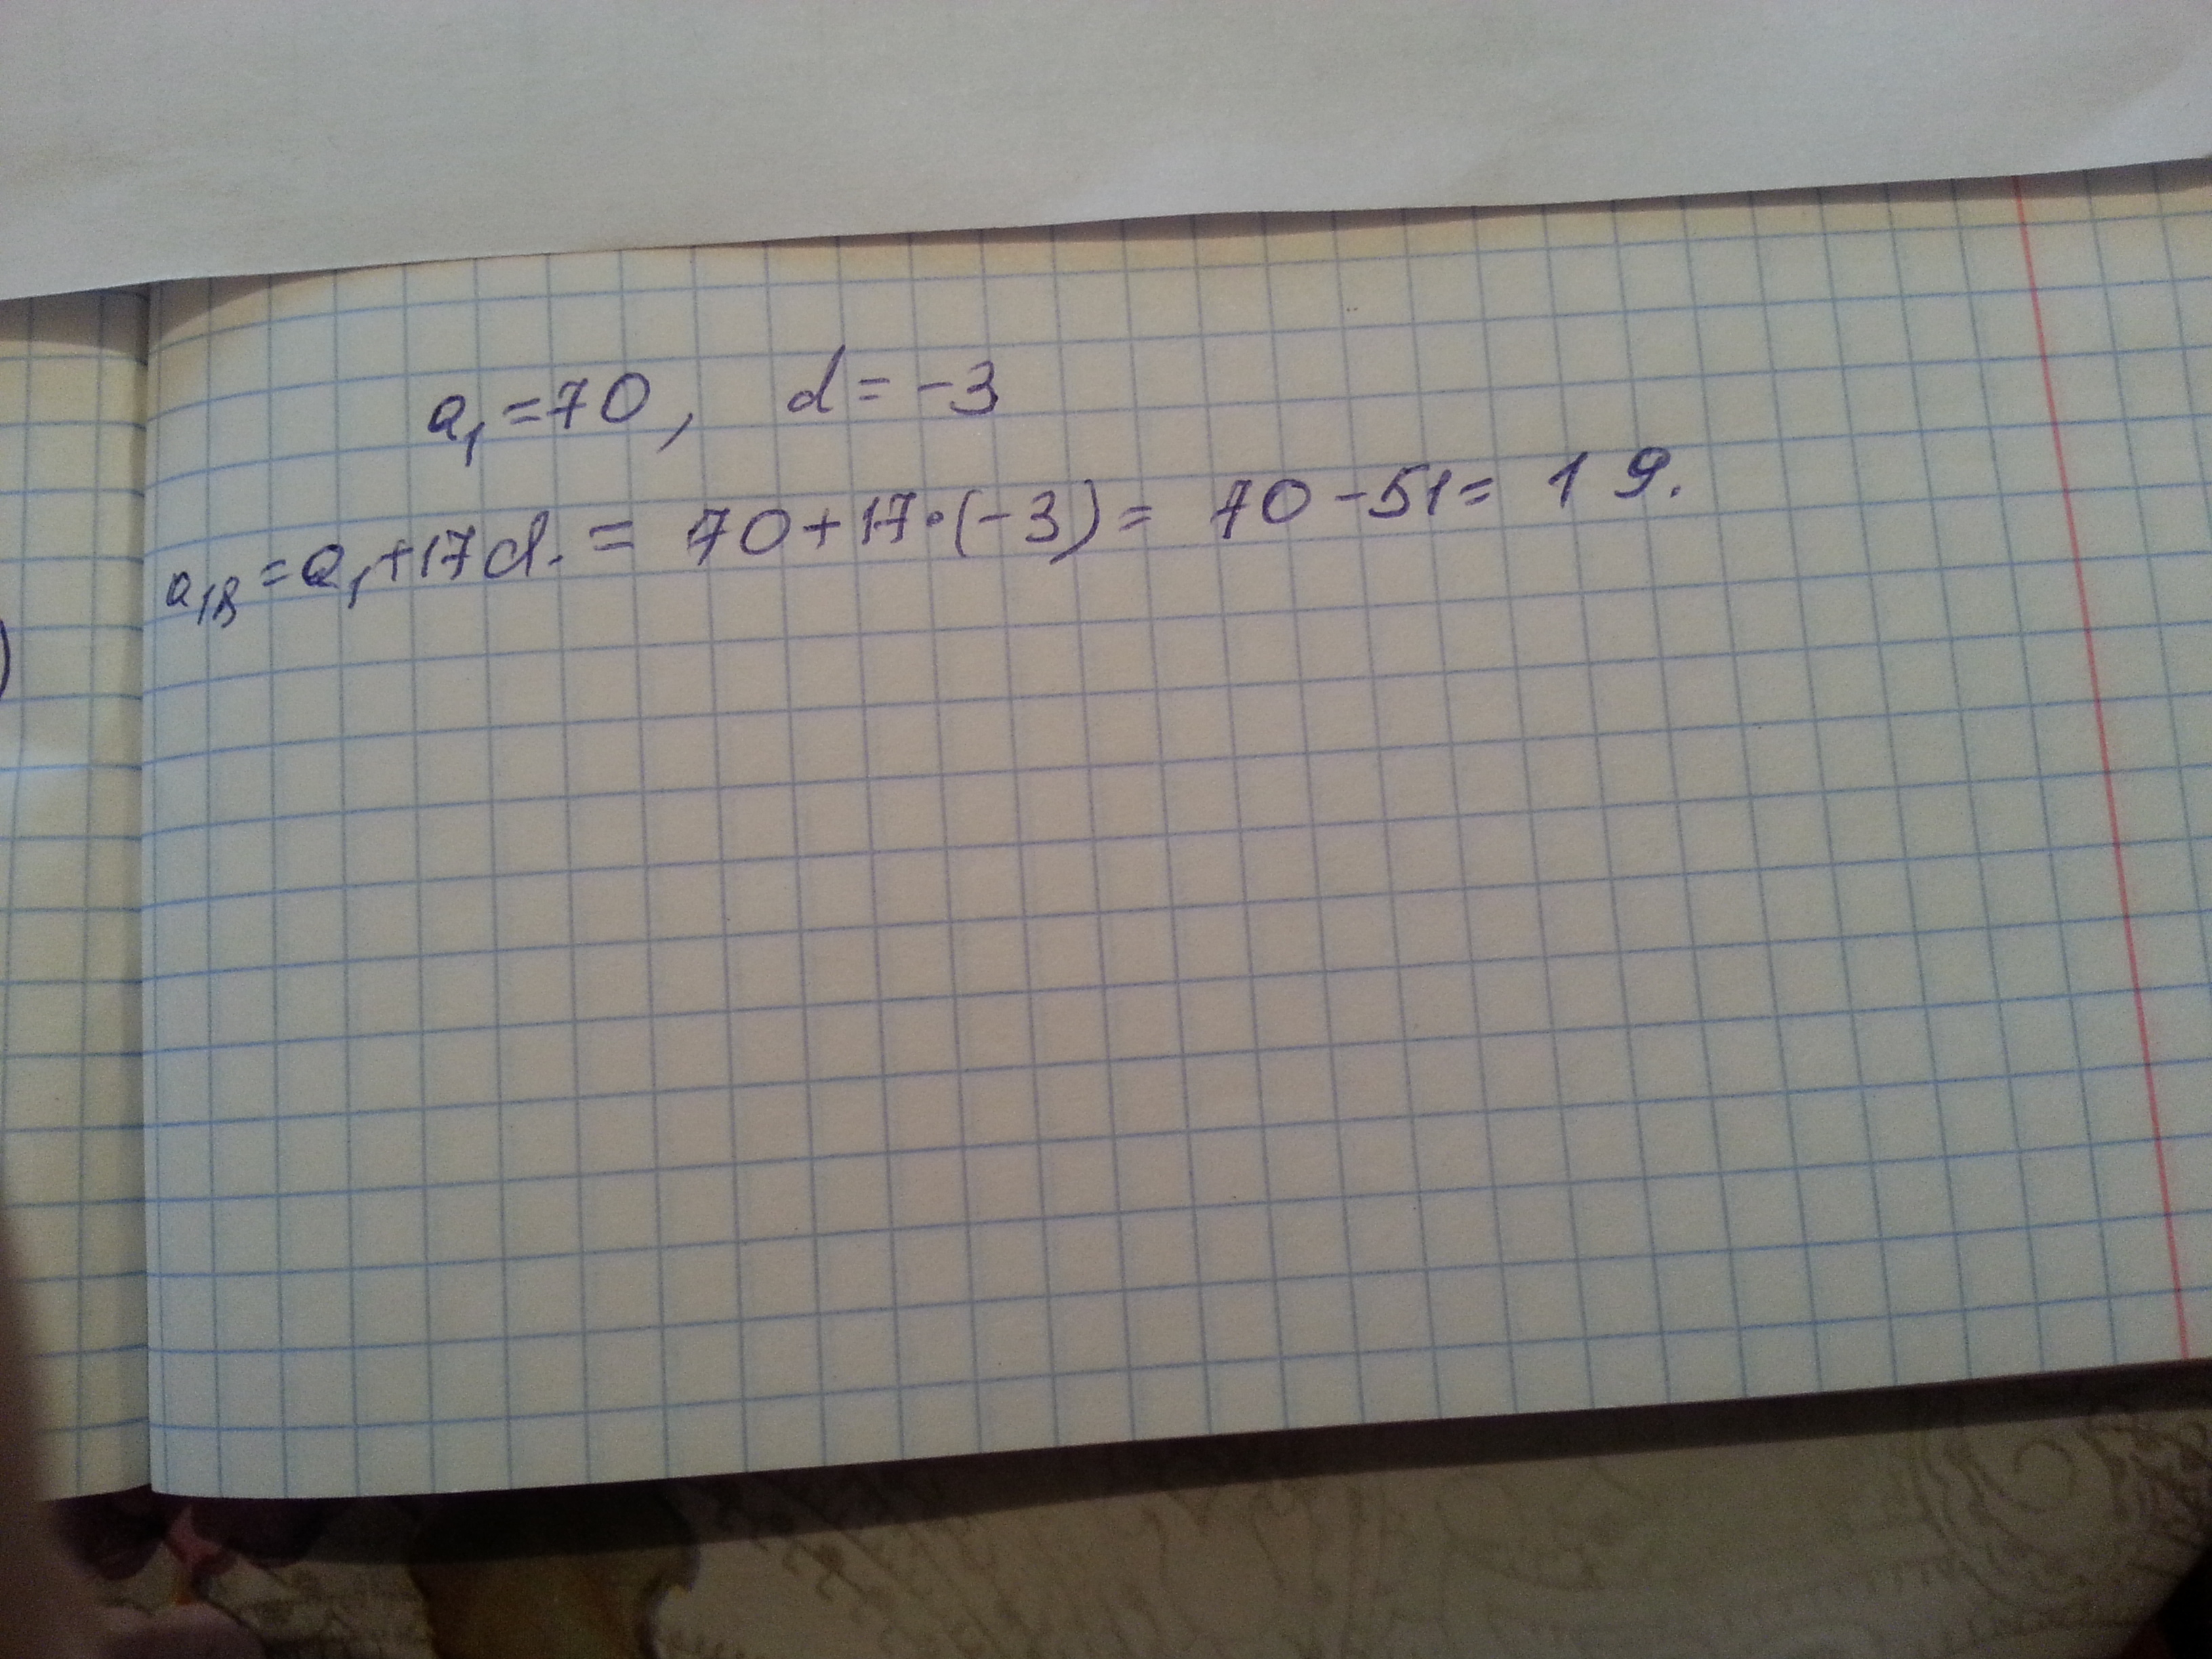 a₁ = 70, d = -3
a₁₈ = a₁ + 17d. = 70 + 17·(-3) = 70 - 51 = 19.